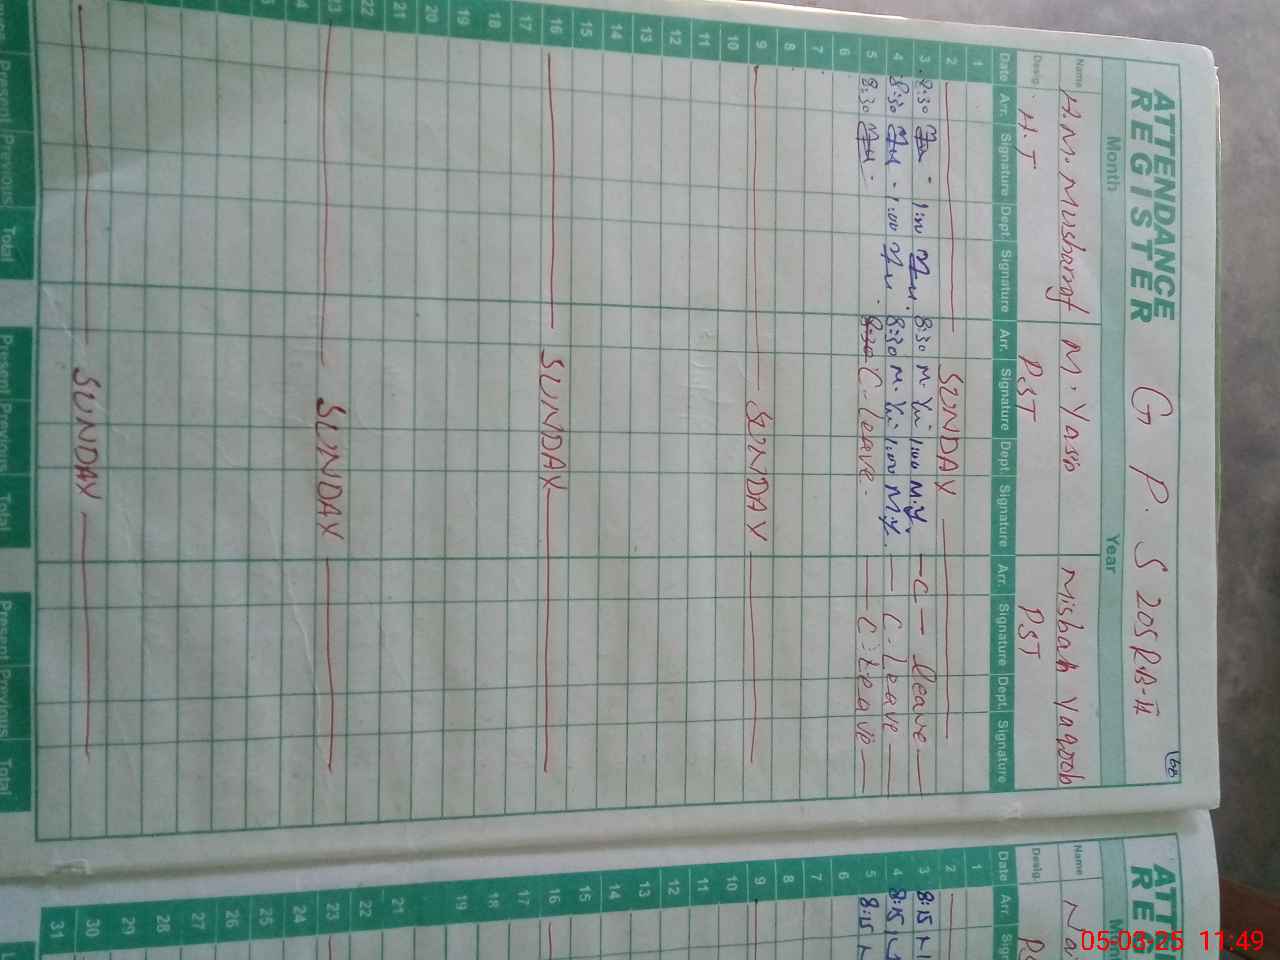 ATTENDANCE REGISTER G P. S 205 RB-II
68
Month Year
Name H.M. Musharraf M. Yasin Misbah Yaqoob
Desig. H.T PST PST
Date Arr. Signature Dept. Signature Arr. Signature Dept. Signature Arr. Signature Dept. Signature
1
2 SUNDAY
3 8:30 1:00 8:30 M. Yasin 1:00 M.Y. C Leave
4 8:30 1:00 8:30 M. Yasin 1:00 M.Y. C. Leave
5 8:30 8:30 C. Leave. C. Leave
6
7
8
9 SUNDAY
10
11
12
13
14
15
16 SUNDAY
17
18
19
20
21
22
23 SUNDAY
SUNDAY
Present Previous Total Present Previous Total Present Previous Total
Name
Desig.
Date Arr.
1
2
3 8:15
4 8:15
5 8:15
6
7
8
9
10
11
12
13
14
15
16
17
18
19
21
22
23
24
25
26
27
28
29
30
31
05-03-25 11:49